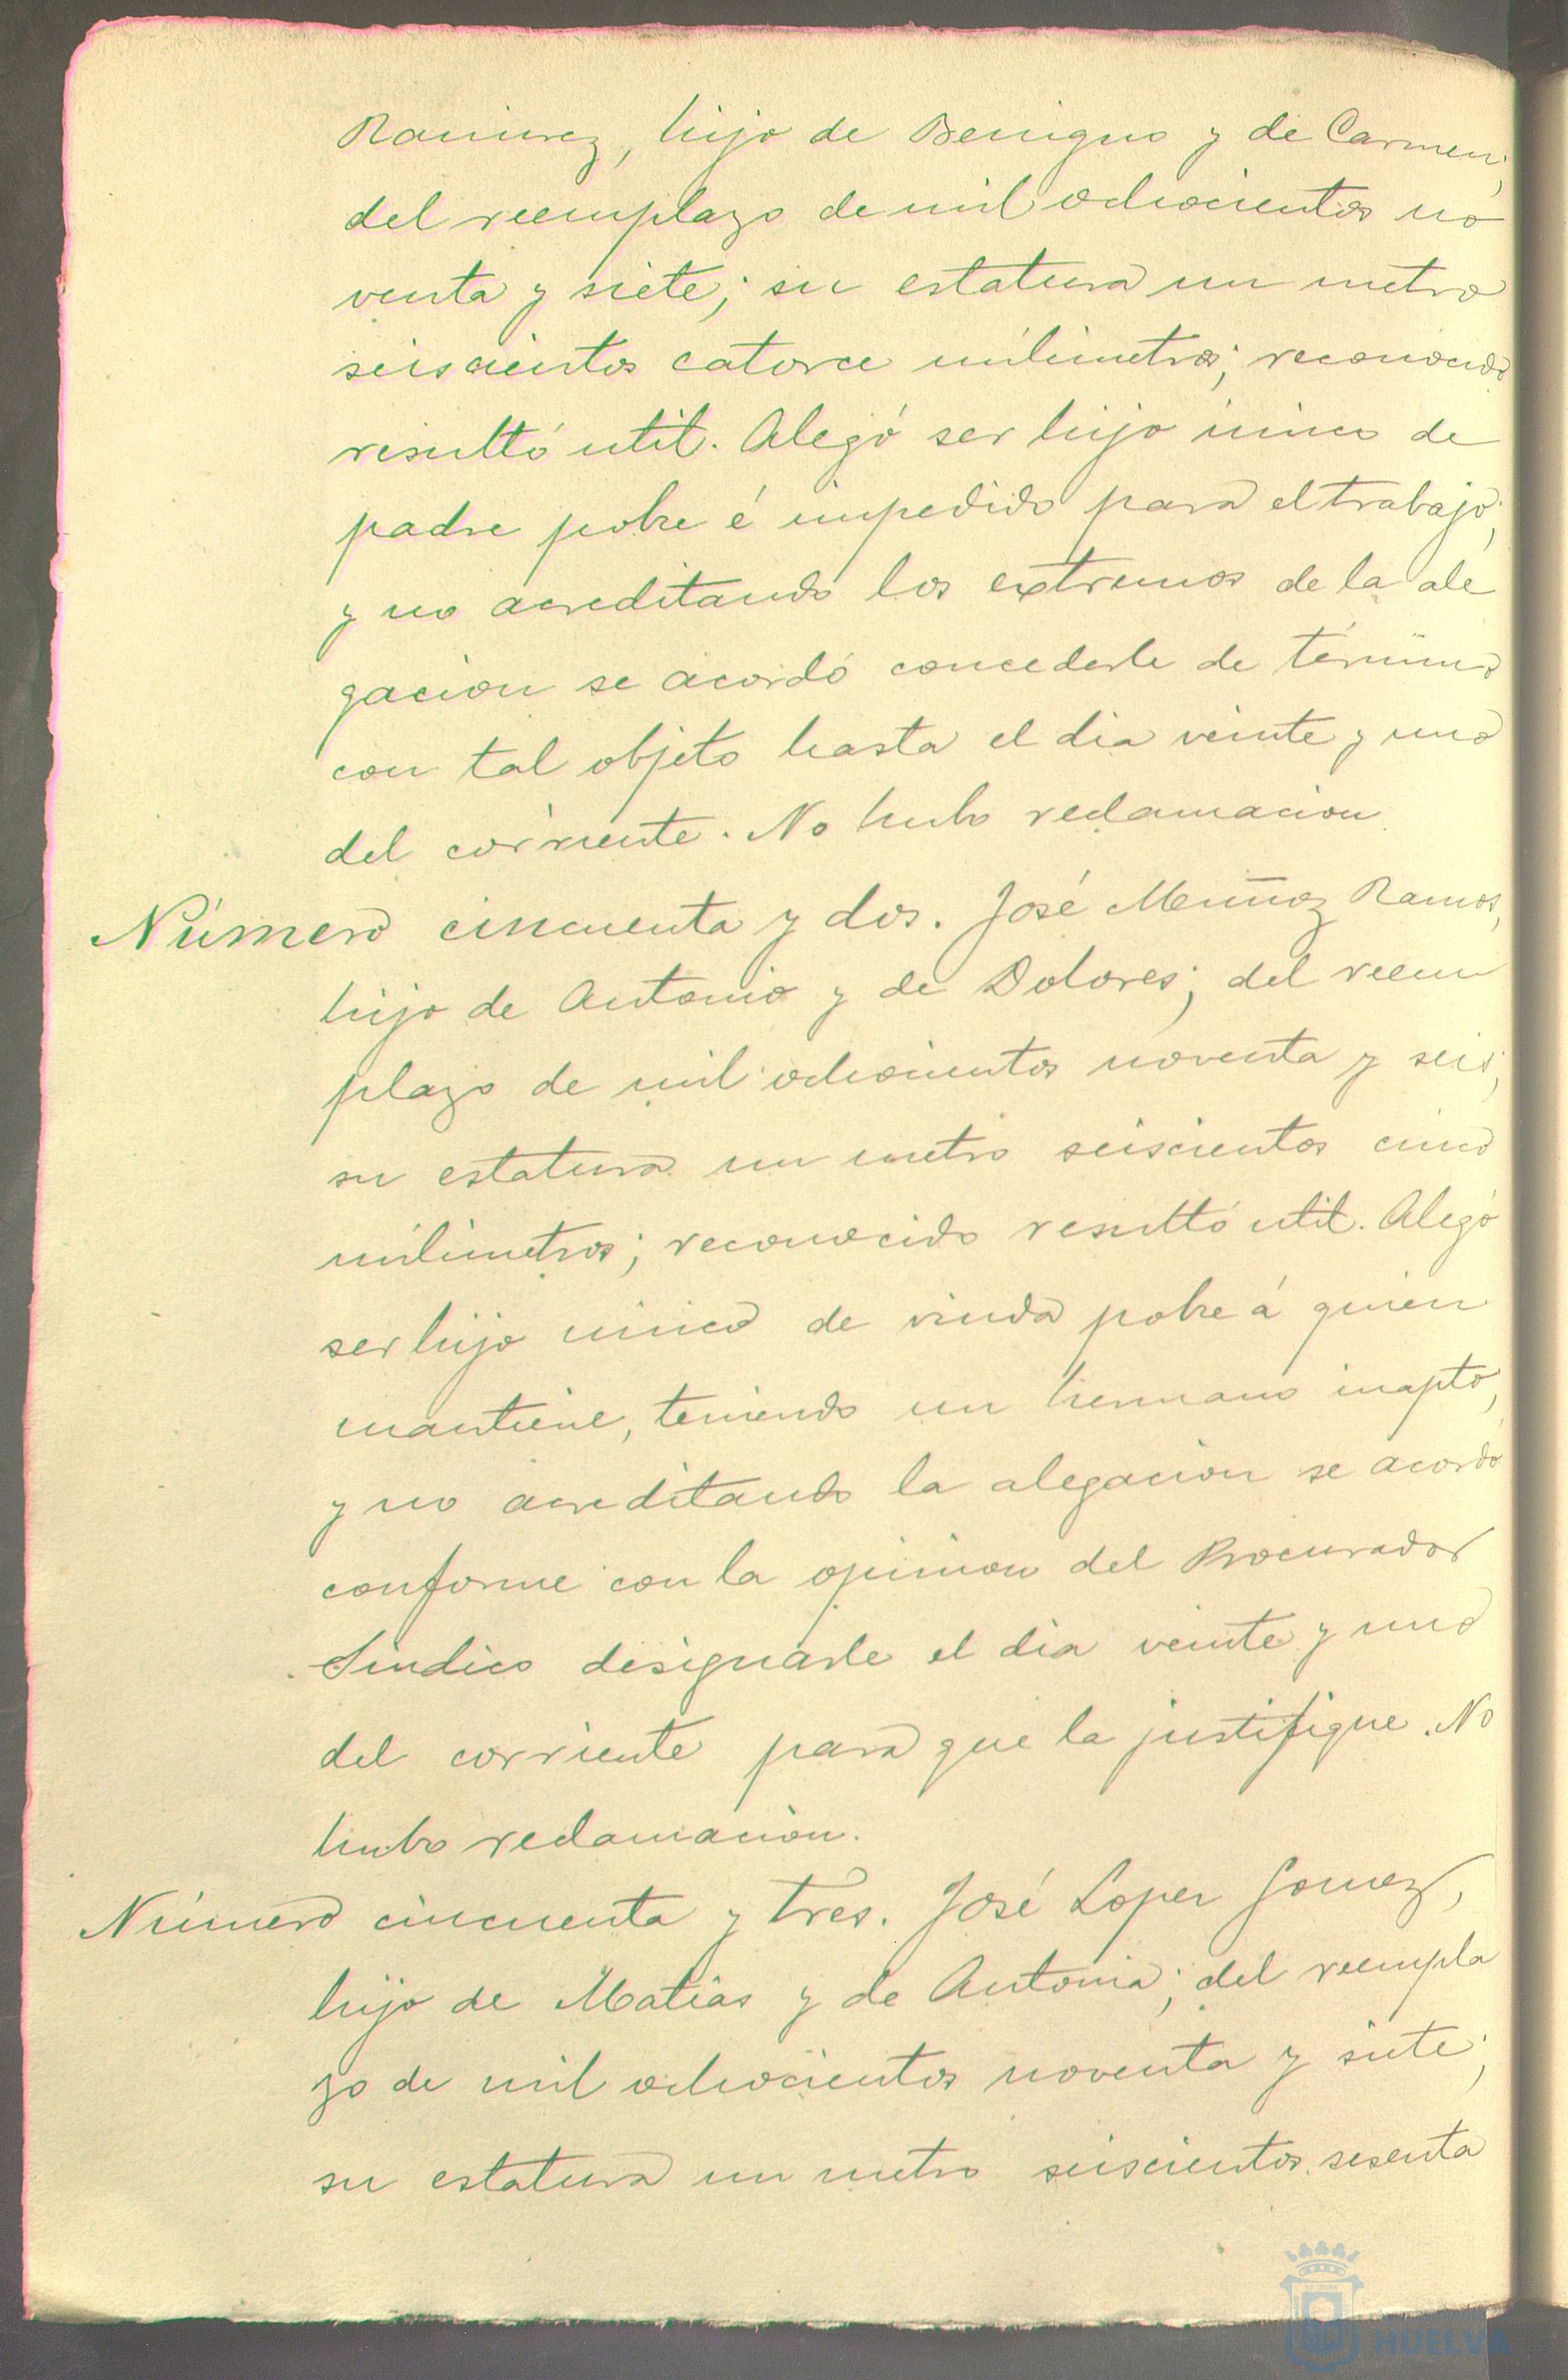 Ramirez, hijo de Benigno y de Carmen;
del reemplazo de mil ochocientos no
venta y siete; su estatura un metro
seiscientos catorce milimetros; reconocido
resultó util. Alegó ser hijo único de
padre pobre é impedido para el trabajo;
y no acreditando los extremos de la ale
gacion se acordó concederle de término
con tal objeto hasta el dia veinte y uno
del corriente. No hubo reclamacion
Número cincuenta y dos. José Muñoz Ramos,
hijo de Antonio y de Dolores; del reem
plazo de mil ochocientos noventa y seis;
su estatura un metro seiscientos cinco
milimetros; reconocido resultó util. Alegó
ser hijo único de viuda pobre á quien
mantiene, teniendo un hermano inapto,
y no acreditando la alegacion se acordó
conforme con la opinion del Procurador
Sindico designarle el dia veinte y uno
del corriente para que la justifique. No
hubo reclamacion.
Número cincuenta y tres. José Lopez Gomez,
hijo de Matias y de Antonia; del reempla
zo de mil ochocientos noventa y siete;
su estatura un metro seiscientos sesenta
HUELVA